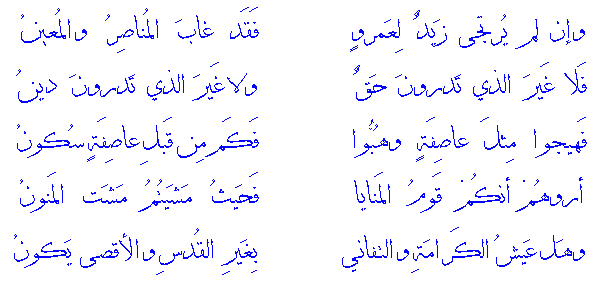 وإن لم يُرتَجى زيَدٌ لِعَمروٍ فَقَد غابَ المُناصِرُ والمُعينُ
فَلا غَيَرَ الذي تَدرونَ حَقٌ ولا غَيَرَ الذي تَدرونَ دينُ
فَهيجوا مِثلَ عاصِفَةٍ وهُبُّوا فَكَم مِن قَبلِ عاصِفَةٍ سُكونُ
أروهُمْ أنكُمْ قَومُ المَنايا فَحَيثُ مَشَيتُمُ مَشَت المَنونُ
وهَل عَيشُ الكَرامَةِ والتفاني بِغَيرِ القُدسِ والأقصى يَكونُ